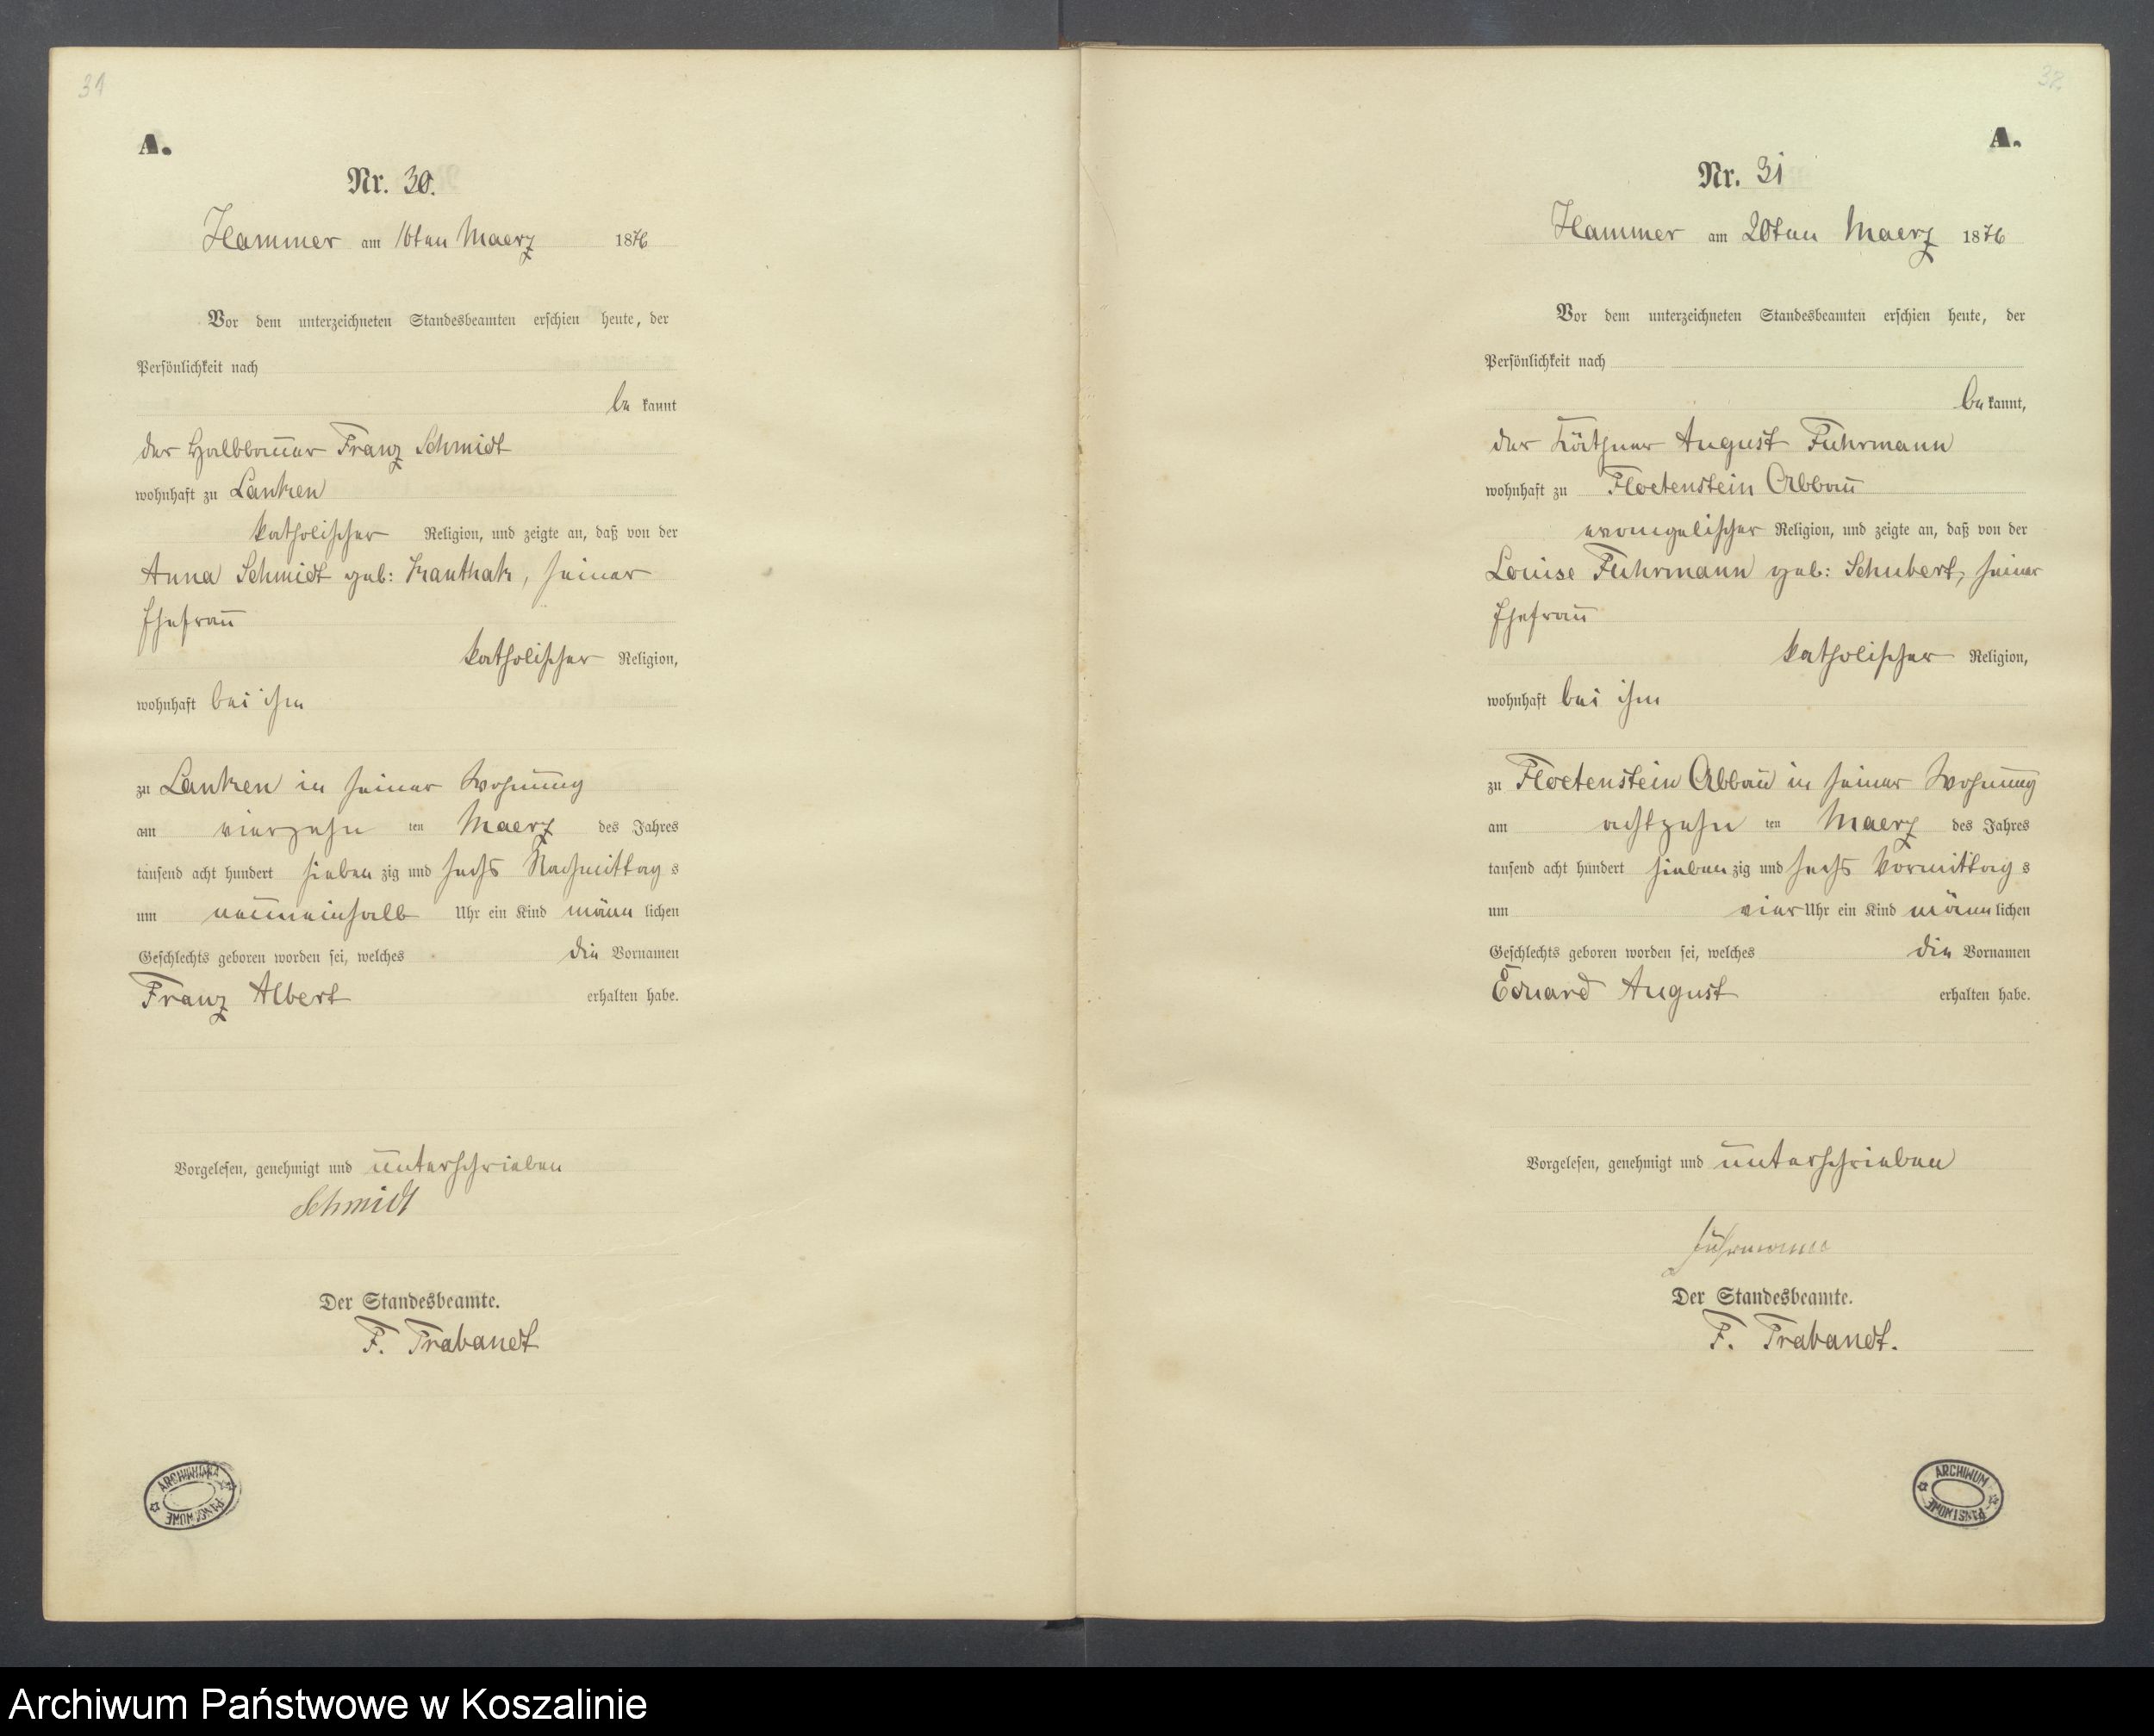 31
A.
Nr. 30.
Hammer am 16ten Maerz 1876
Vor dem unterzeichneten Standesbeamten erschien heute, der
Persönlichkeit nach
be kannt
der Halbbauer Franz Schmidt
wohnhaft zu Lanken
katholischer Religion, und zeigte an, daß von der
Anna Schmidt geb: Kanthak, seiner
Ehefrau
katholischer Religion,
wohnhaft bei ihm
zu Lanken in seiner Wohnung
am vierzehn ten Maerz des Jahres
tausend acht hundert sieben zig und sechs Nachmittag s
um neuneinhalb Uhr ein Kind männ lichen
Geschlechts geboren worden sei, welches die Vornamen
Franz Albert erhalten habe.
Vorgelesen, genehmigt und unterschrieben
Schmidt
Der Standesbeamte.
F. Trabandt
ARCHIWUM PAŃSTWOWE
32
A.
Nr. 31
Hammer am 20ten Maerz 1876
Vor dem unterzeichneten Standesbeamten erschien heute, der
Persönlichkeit nach
be kannt,
der Käthner August Fuhrmann
wohnhaft zu Floetenstein Abbau
evangelischer Religion, und zeigte an, daß von der
Louise Fuhrmann geb: Schubert, seiner
Ehefrau
katholischer Religion,
wohnhaft bei ihm
zu Floetenstein Abbau in seiner Wohnung
am achtzehn ten Maerz des Jahres
tausend acht hundert sieben zig und sechs Vormittag s
um vier Uhr ein Kind männ lichen
Geschlechts geboren worden sei, welches die Vornamen
Eduard August erhalten habe.
Vorgelesen, genehmigt und unterschrieben
Fuhrmann
Der Standesbeamte.
F. Trabandt.
ARCHIWUM PAŃSTWOWE
Archiwum Państwowe w Koszalinie